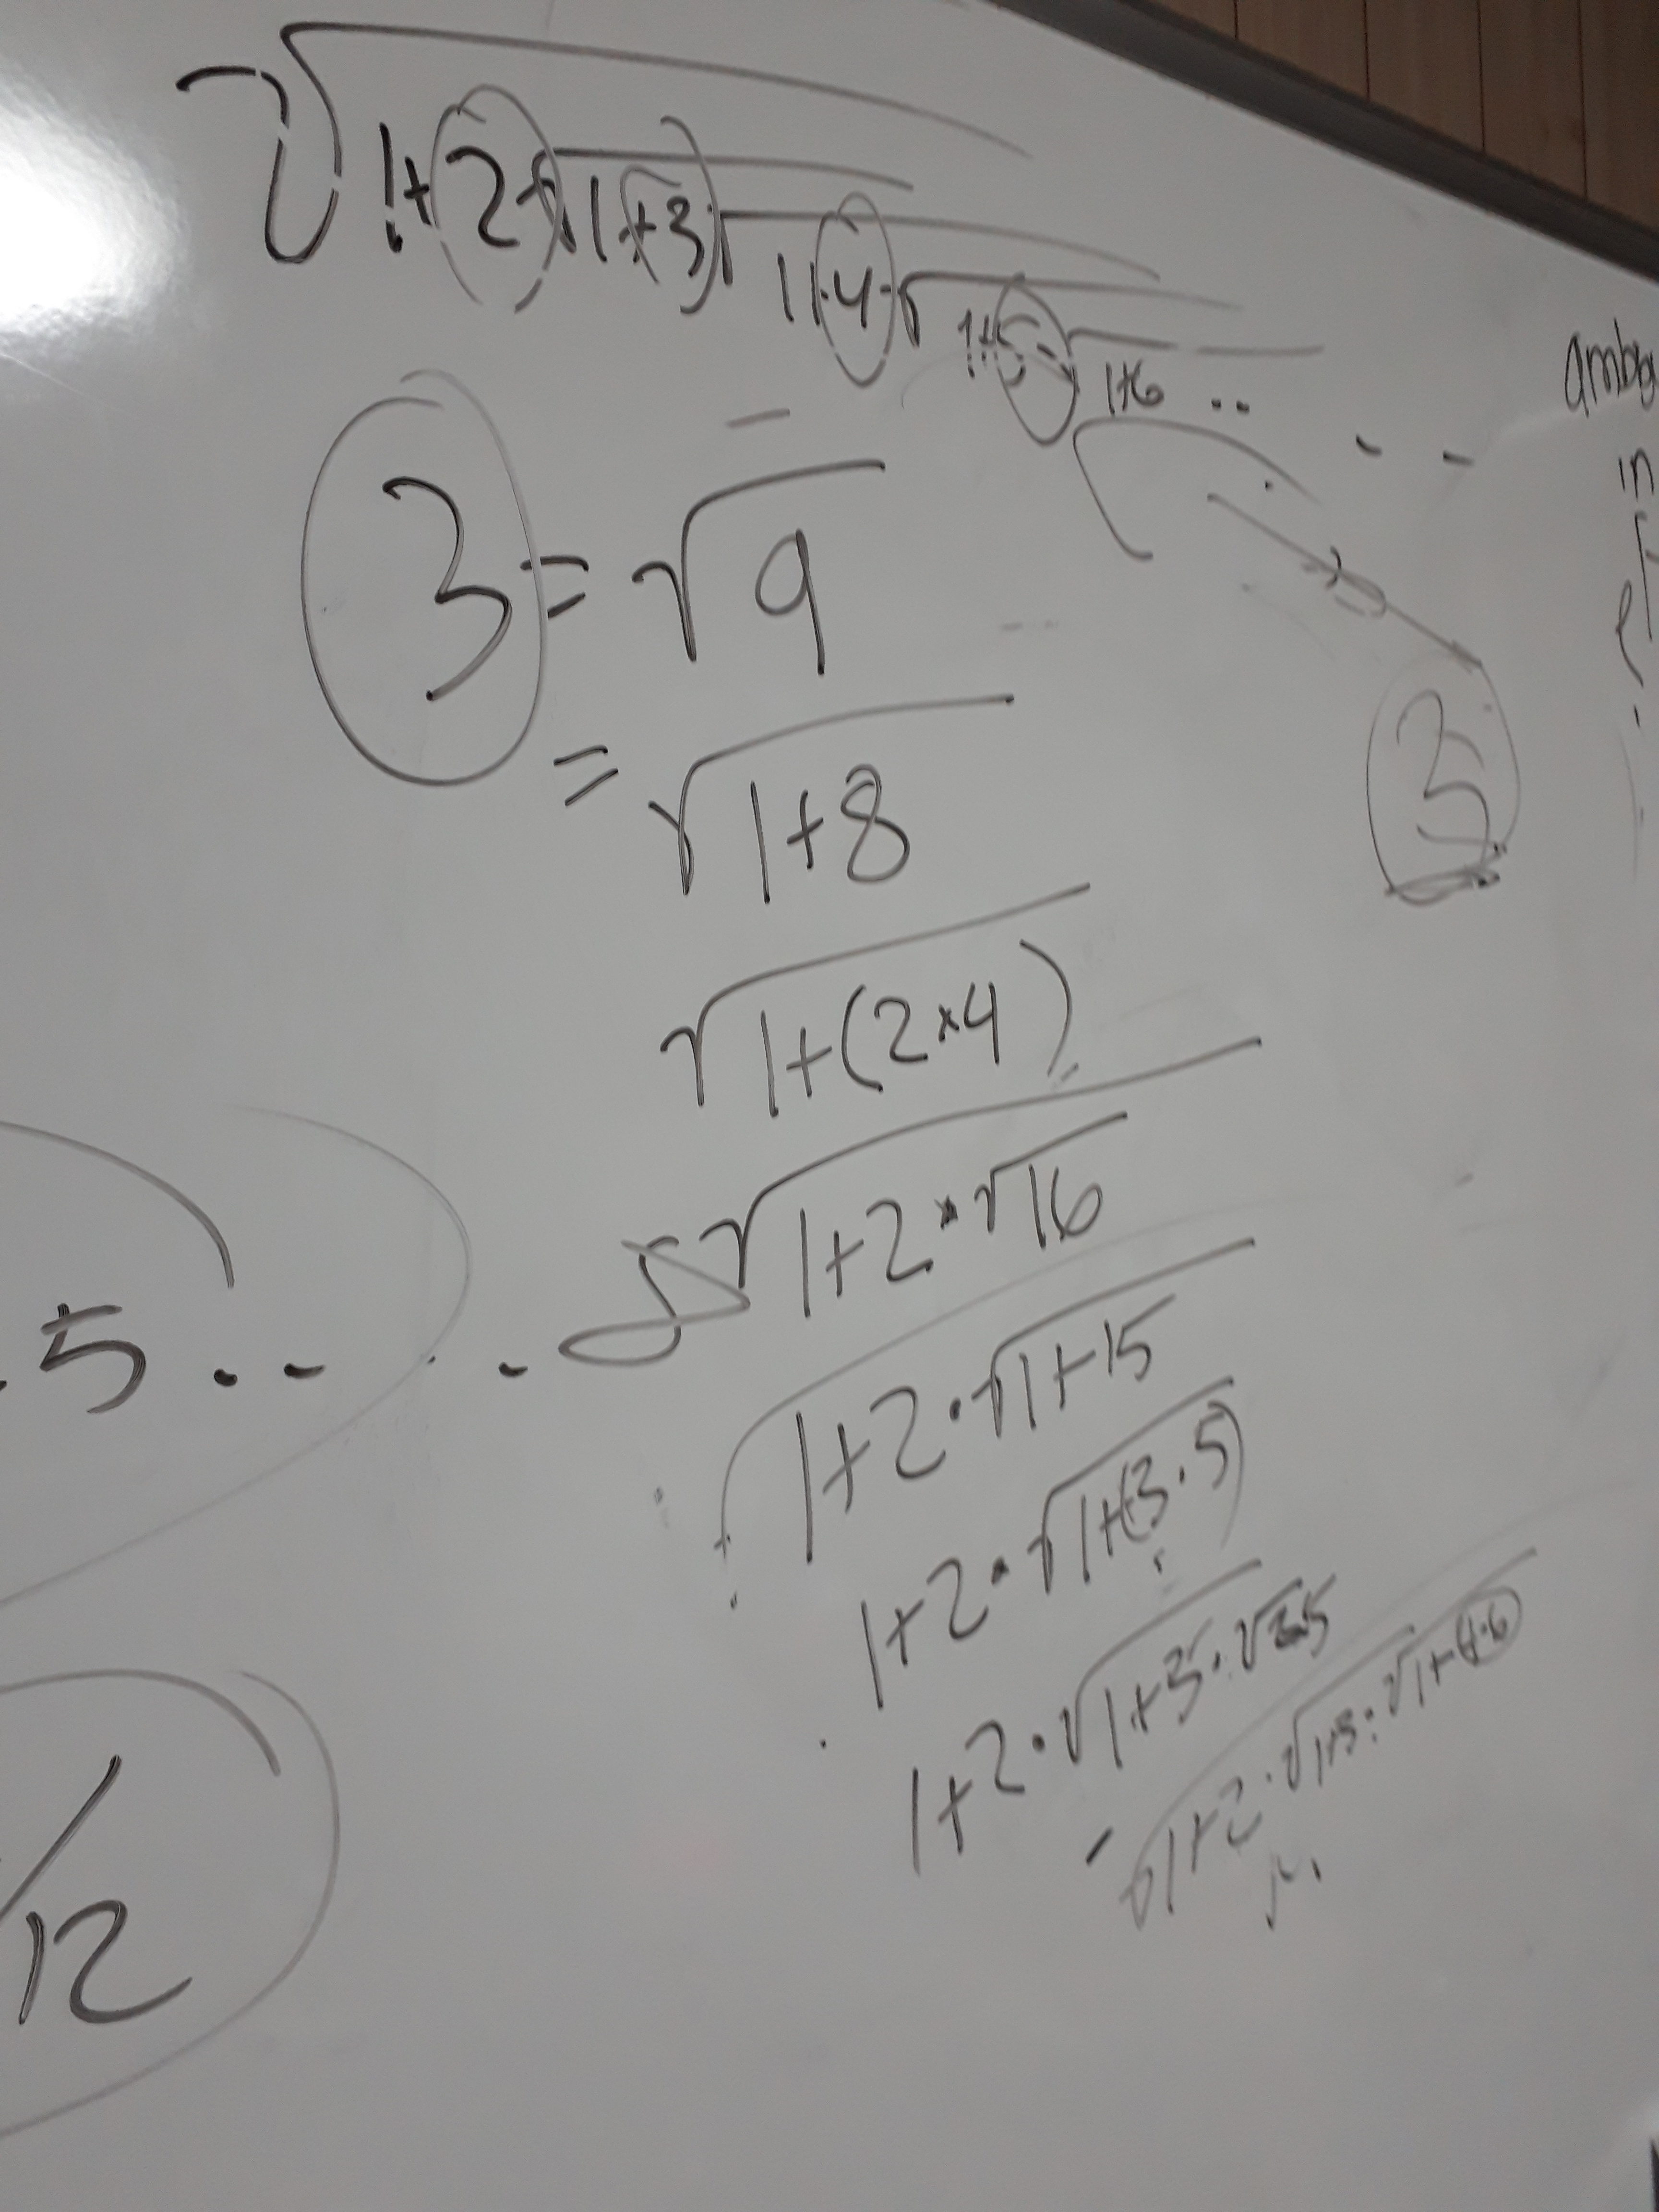 √1+2·√1+3·√1+4·√1+5·√1+6 ..
. .
amb
in
3 = √9
= √1+8
3
√1+(2×4)
√1+2·√16
5 .. . .
1+2·√1+15
1+2·√1+(3·5)
1+2·√1+3·√25
√1+2·√1+3·√1+(4·6)
/
12